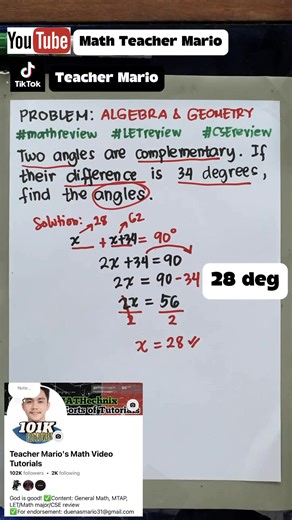 YouTube Math Teacher Mario
TikTok Teacher Mario
PROBLEM: ALGEBRA & GEOMETRY
#mathreview #LETreview #CSEreview
Two angles are complementary. If
their difference is 34 degrees,
find the angles.
Solution: 28 62
x + x+34 = 90°
2x + 34 = 90
2x = 90 - 34
28 deg
2x = 56
2 2
x = 28
Note...
101K
Teacher Mario's Math Video
Tutorials
102K followers • 2K following
God is good! ✅Content: General Math, MTAP,
LET/Math major/CSE review
✅For endorsement: duenasmario31@gmail.com